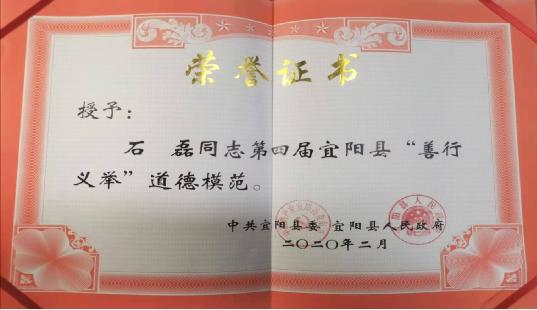 荣誉证书
授予：
石 磊同志第四届宜阳县“善行
义举”道德模范。
中共宜阳县委 宜阳县人民政府
二〇二〇年二月